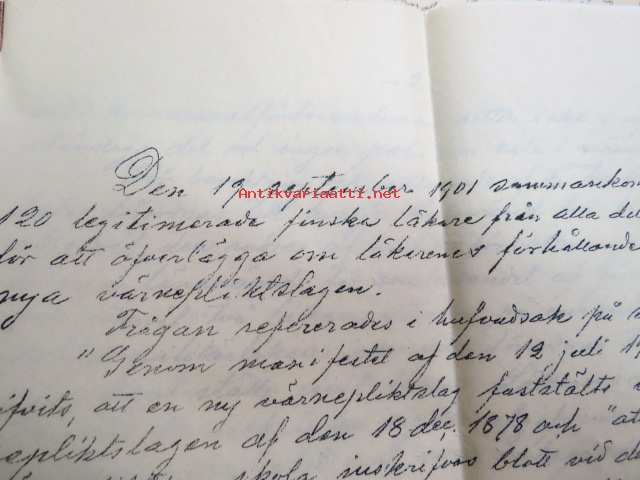 Den 19 september 1901 sammankom
Antikvariaatti.net
120 legitimerade finska läkare från alla del
för att öfverlägga om läkarenes förhållande
nya värnepliktslagen.
Frågan refererades i hufvudsak på s
"Genom manifestet af den 12 juli 1
ifvits, att en ny värnepliktslag fastställts
epliktslagen af den 18 dec. 1878 och "att
skola inskrifvas blott vid de